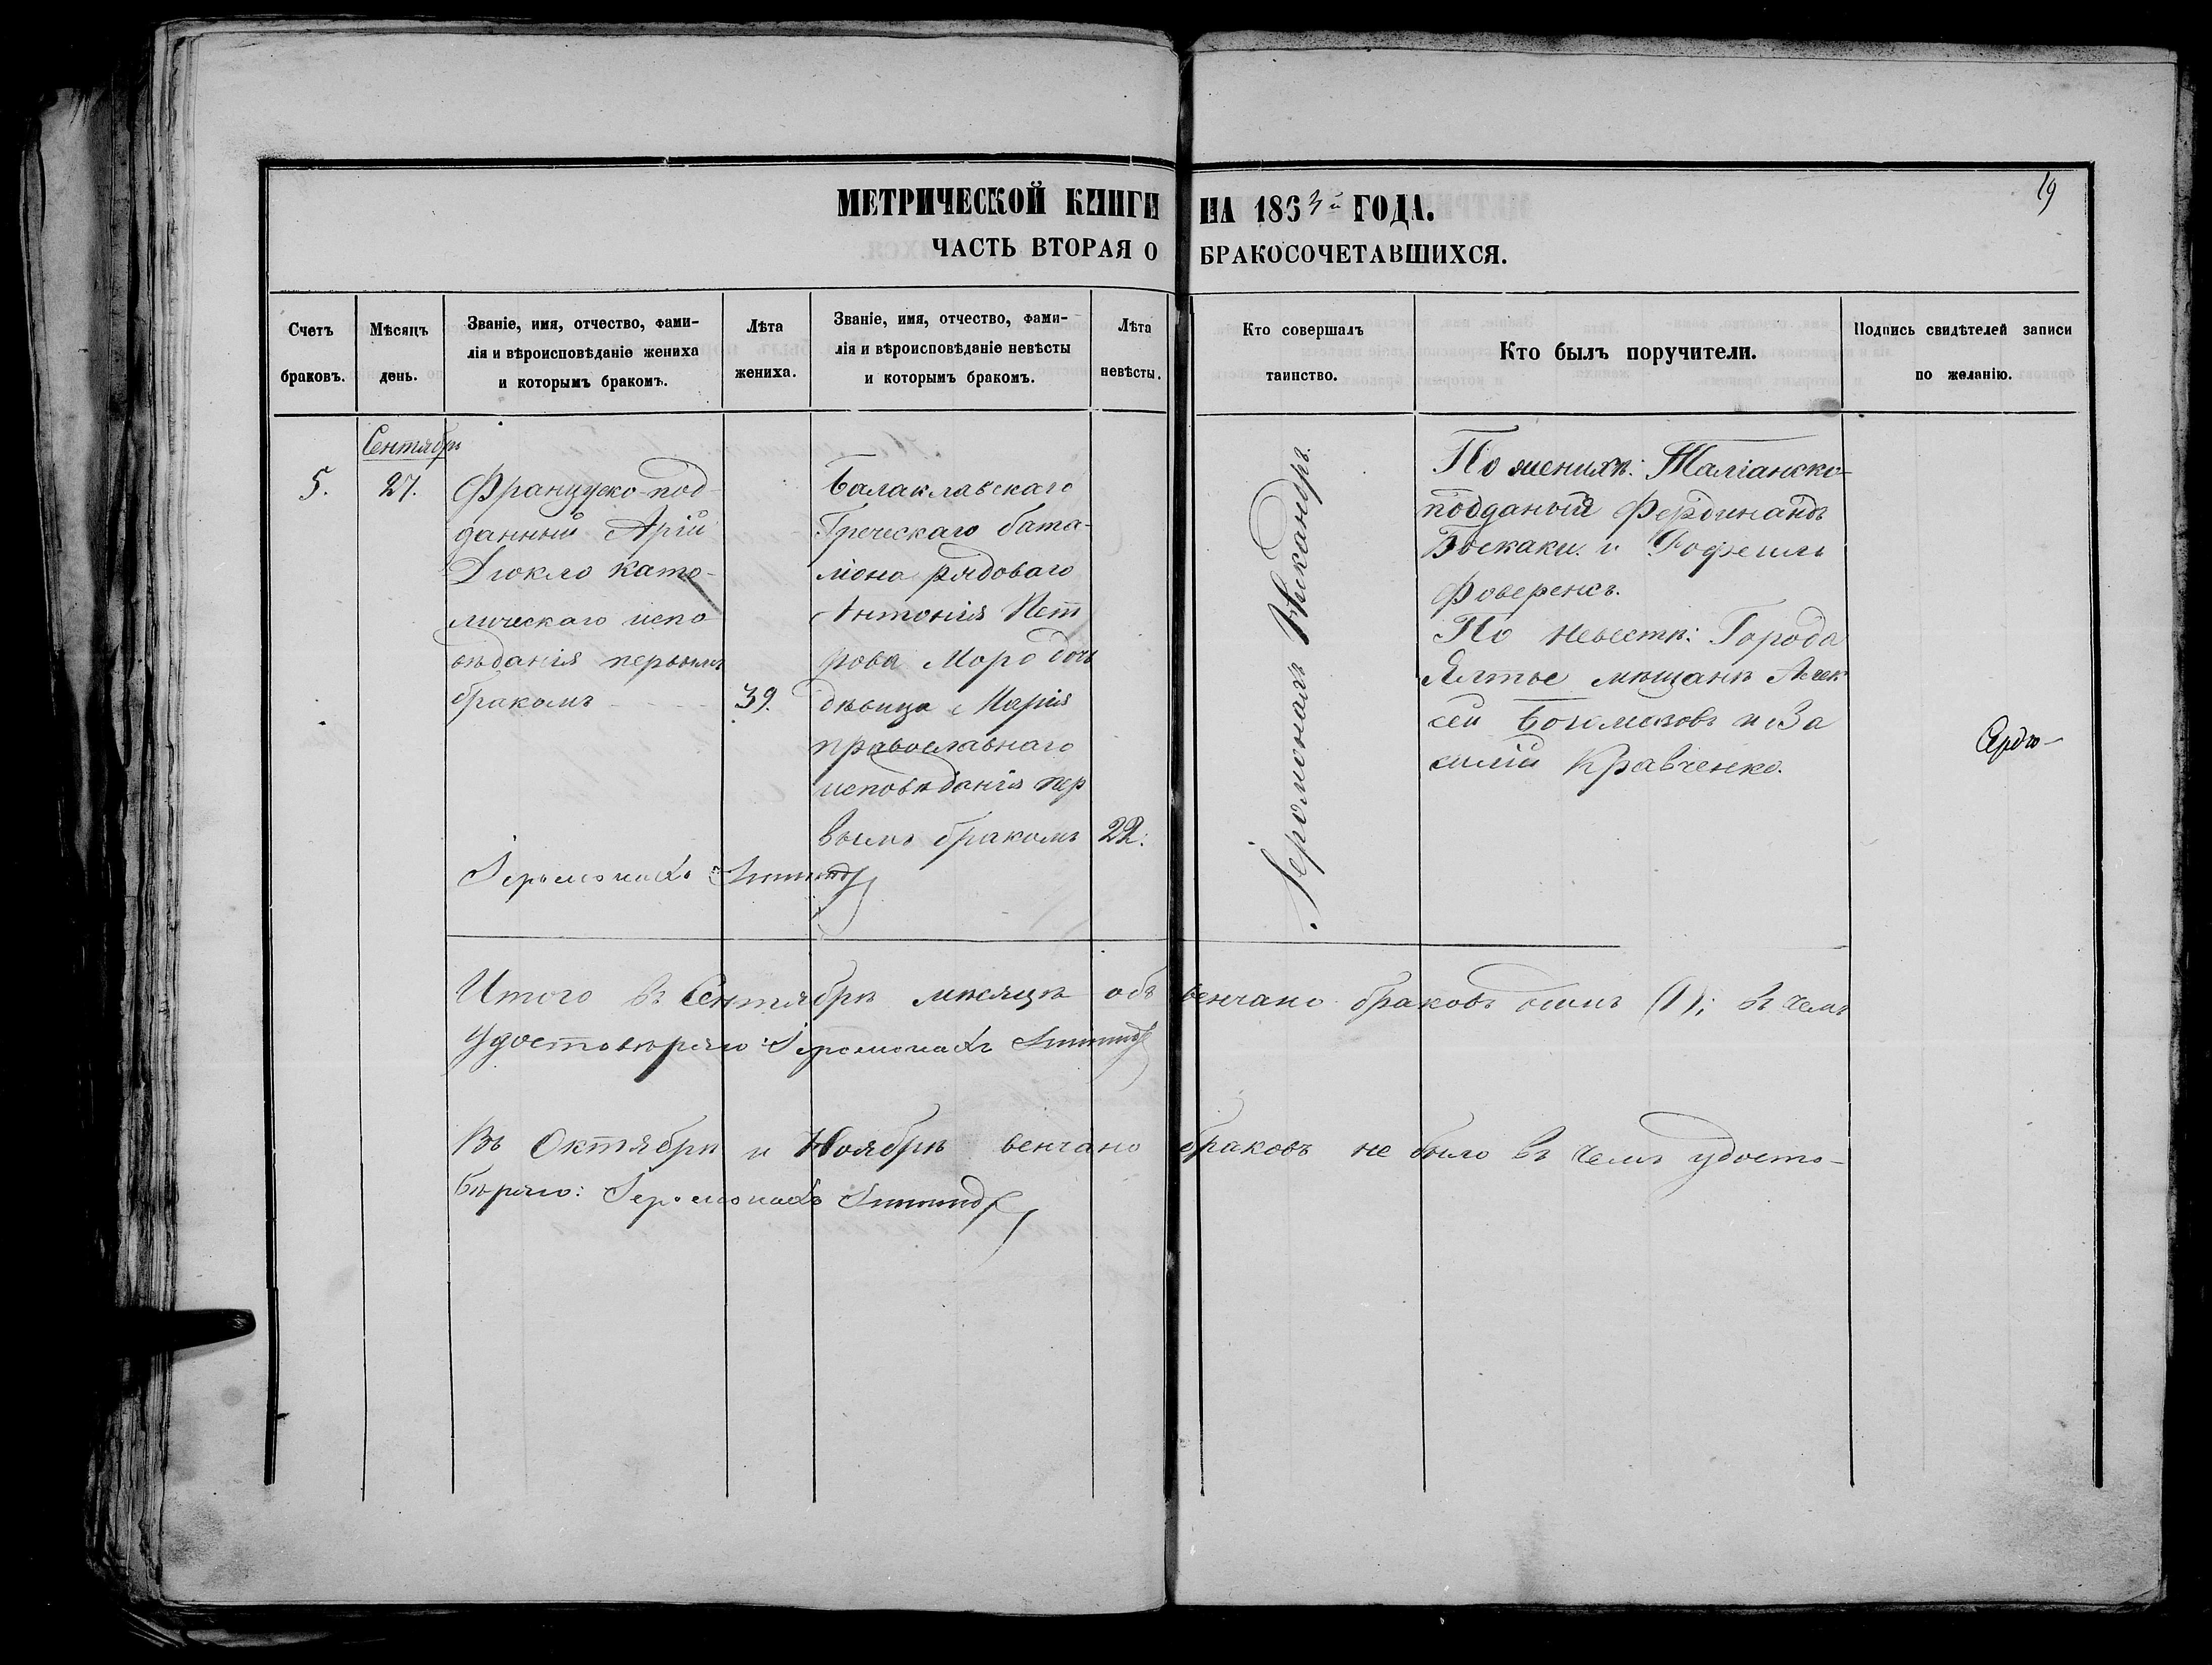 19
МЕТРИЧЕСКОЙ КНИГИ НА 1863й ГОДА.
ЧАСТЬ ВТОРАЯ О БРАКОСОЧЕТАВШИХСЯ.
Счетъ
браковъ.
Мѣсяцъ
день.
Званіе, имя, отчество, фами-
лія и вѣроисповѣданіе жениха
и которымъ бракомъ.
Лѣта
жениха.
Званіе, имя, отчество, фами-
лія и вѣроисповѣданіе невѣсты
и которымъ бракомъ.
Лѣта
невѣсты.
Кто совершалъ
таинство.
Кто былъ поручители.
Подпись свидѣтелей записи
по желанію.
5.
Сентябрь
27.
Французско-под-
данный Арій
Дюкло като-
лическаго испо
вѣданія первымъ
бракомъ
39.
Балаклавскаго
Греческаго бата-
ліона рядоваго
Антонія Пет
рова Моро дочь
дѣвица Марія
православнаго
исповѣданія пер
вымъ бракомъ
22.
Іеромонахъ
Іеромонахъ Никандръ.
По женихѣ: Таліанско-
подданый Фердинандъ
Боскаки и
Фоверенсъ.
По невестѣ: Города
Ялты мѣщане Алек
сей и Ва
силій Кравченко.
Итого въ Сентябрѣ мѣсяцѣ обвенчано браковъ одинъ (1); въ чемъ
удостовѣряю: Іеромонахъ
Въ Октябрѣ и Ноябрѣ венчано браковъ не было въ чемъ удосто-
вѣряю: Іеромонахъ